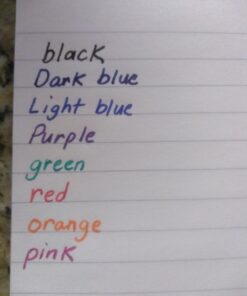 black
Dark blue
Light blue
Purple
green
red
orange
pink